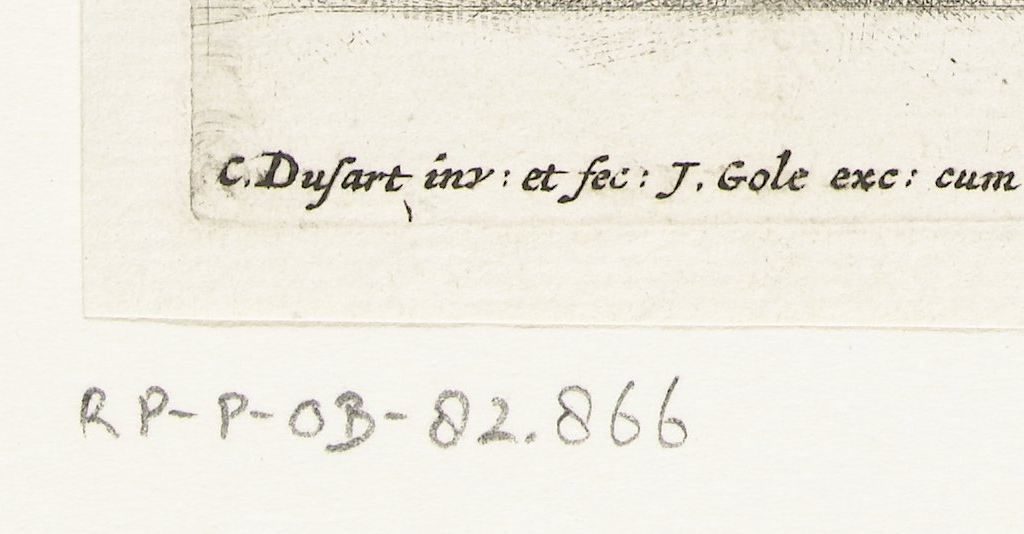 C. Duſart inv: et fec: J. Gole exc: cum
RP-P-OB-82.866